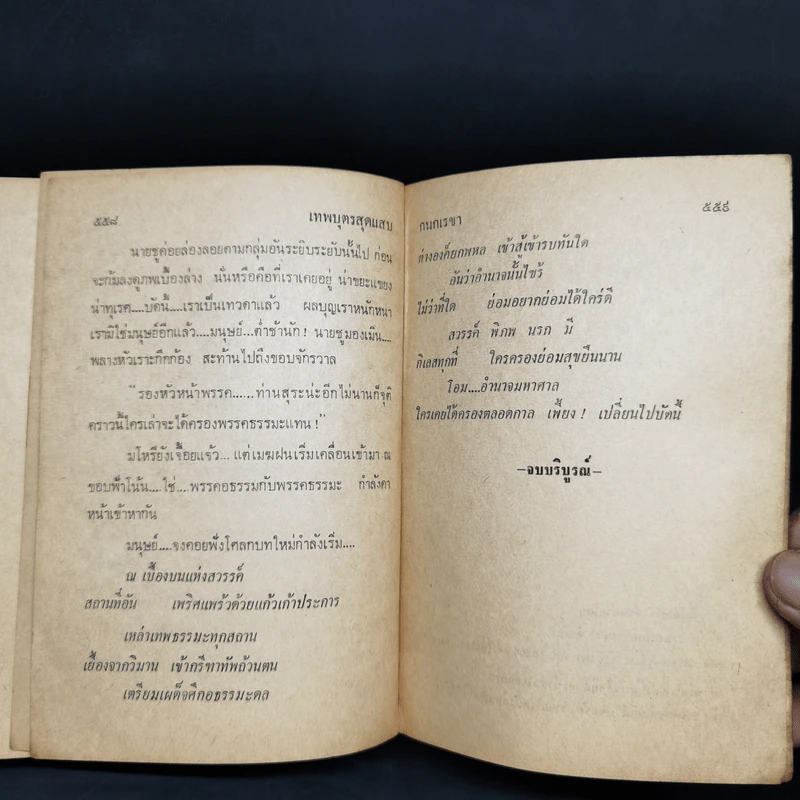 ๕๕๘ เทพบุตรสุดแสบ
นายชูค่อยล่องลอยตามกลุ่มอันระยิบระยับนั้นไป ก่อน
จะก้มลงดูภพเบื้องล่าง นั่นหรือคือที่เราเคยอยู่ น่าขยะแขยง
น่าทุเรศ....บัดนี้....เราเป็นเทวดาแล้ว ผลบุญเราหนักหนา
เรามิใช่มนุษย์อีกแล้ว....มนุษย์...ต่ำช้านัก! นายชูมองเมิน....
พลางหัวเราะกึกก้อง สะท้านไปถึงขอบจักรวาล
“รองหัวหน้าพรรค......ท่านสุระน่ะอีกไม่นานก็จุติ
คราวนี้ใครเล่าจะได้ครองพรรคธรรมะแทน!”
มโหรียังเจื้อยแจ้ว...แต่เมฆฝนเริ่มเคลื่อนเข้ามา ณ
ขอบฟ้าโน้น....ใช่....พรรคอธรรมกับพรรคธรรมะ กำลังดา
หน้าเข้าหากัน
มนุษย์....จงคอยฟังโศลกบทใหม่กำลังเริ่ม....
ณ เบื้องบนแห่งสวรรค์
สถานที่อัน เพริศแพร้วด้วยแก้วเก้าประการ
เหล่าเทพธรรมะทุกสถาน
เยื้องจากวิมาน เข้ากรีฑาทัพถ้วนตน
เตรียมเผด็จศึกอธรรมะดล
กนกเรขา ๕๕๙
ต่างองค์ยกพหล เข้าสู้เข้ารบทันใด
อันว่าอำนาจนั้นไซร้
ไม่ว่าที่ใด ย่อมอยากย่อมได้ใคร่ดี
สวรรค์ พิภพ นรก มี
กิเลสทุกที่ ใครครองย่อมสุขยืนนาน
โอม....อำนาจมหาศาล
ใครเคยได้ครองตลอดกาล เพี้ยง! เปลี่ยนไปบัดนี้
–จบบริบูรณ์–